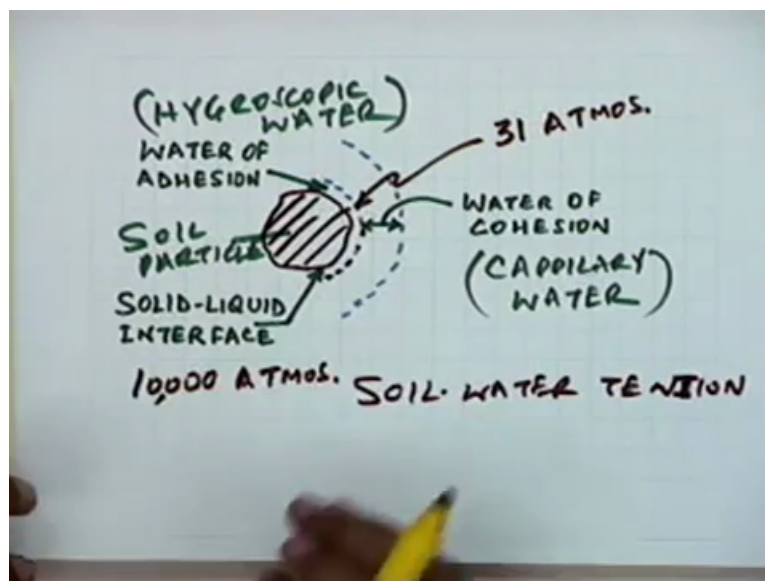 (HYGROSCOPIC
WATER)
WATER OF
ADHESION
31 ATMOS.
WATER OF
COHESION
SOIL
PARTICLE
(CAPPILARY
WATER)
SOLID-LIQUID
INTERFACE
10,000 ATMOS.
SOIL-WATER TENSION